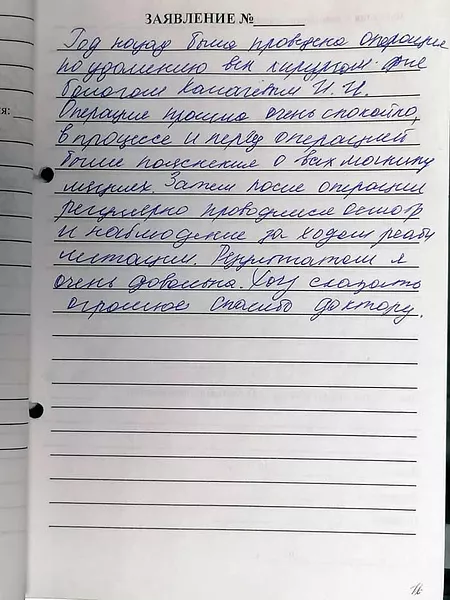 ЗАЯВЛЕНИЕ №
Год назад была проведена операция
по удалению вен хирургом фле
бологом Калачётом И. И.
Операция прошла очень спокойно,
в процессе и перед операцией
были пояснения о всех манипу
ляциях. Затем после операции
регулярно проводился осмотр
и наблюдение за ходом реаби
литации. Результатом я
очень довольна. Хочу сказать
огромное спасибо доктору.